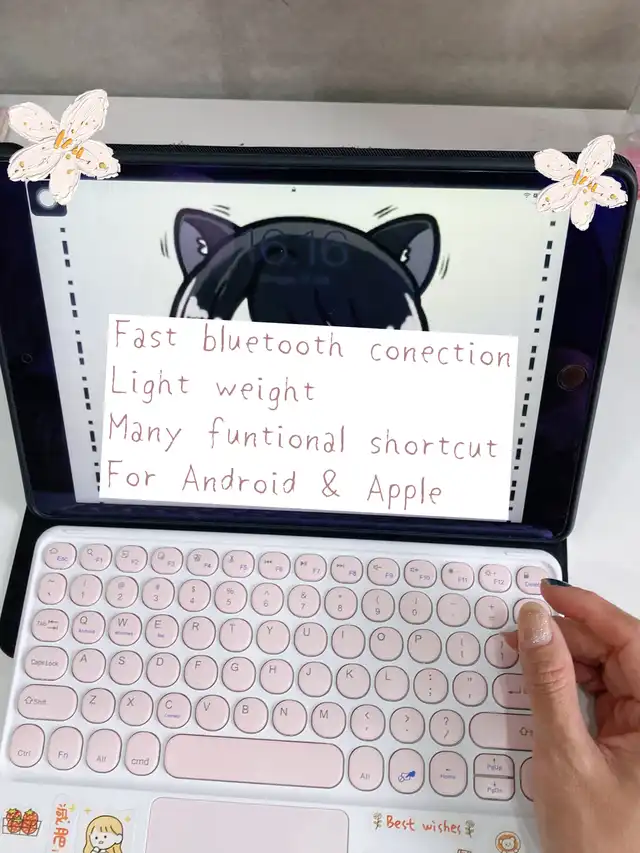 16:16
Fast bluetooth conection
Light weight
Many funtional shortcut
For Android & Apple
Esc F1 F2 F3 F4 F5 F6 F7 F8 F9 F10 F11 F12
~ ! @ 2 # 3 $ 4 % 5 ^ 6 & 7 * 8 ( 9 ) 0 _ - + =
Tab Q Android W Windows E R T Y U I O P { [ }
CapsLock A S D F G H J K L : ; " '
Shift Z X C V B N M < , > . ? /
Ctrl Fn Alt cmd Alt Home PgUp
PgDn
减肥
Best wishes